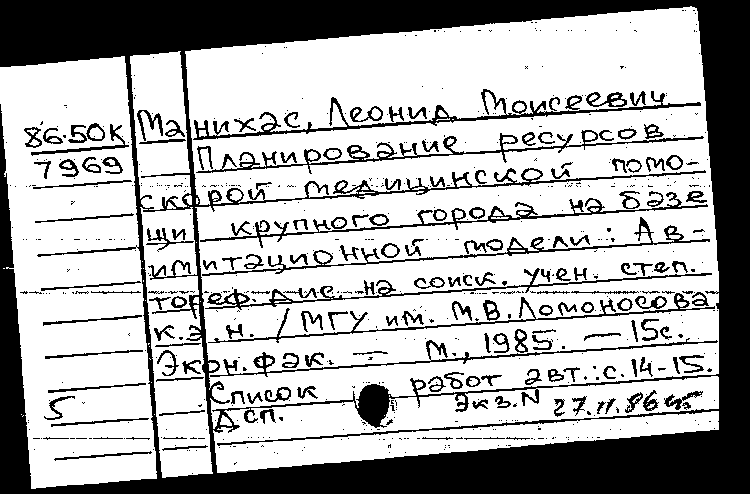 86.50К Манихас, Леонид Моисеевич
7969 Планирование ресурсов
скорой медицинской помо-
щи крупного города на базе
имитационной модели: Ав-
тореф. дис. на соиск. учен. степ.
к.э.н. / МГУ им. М.В.Ломоносова,
Экон.фак. — М., 1985. — 15с.
Список работ авт.: с.14-15.
5 Дсп. Экз.N 27.11.86